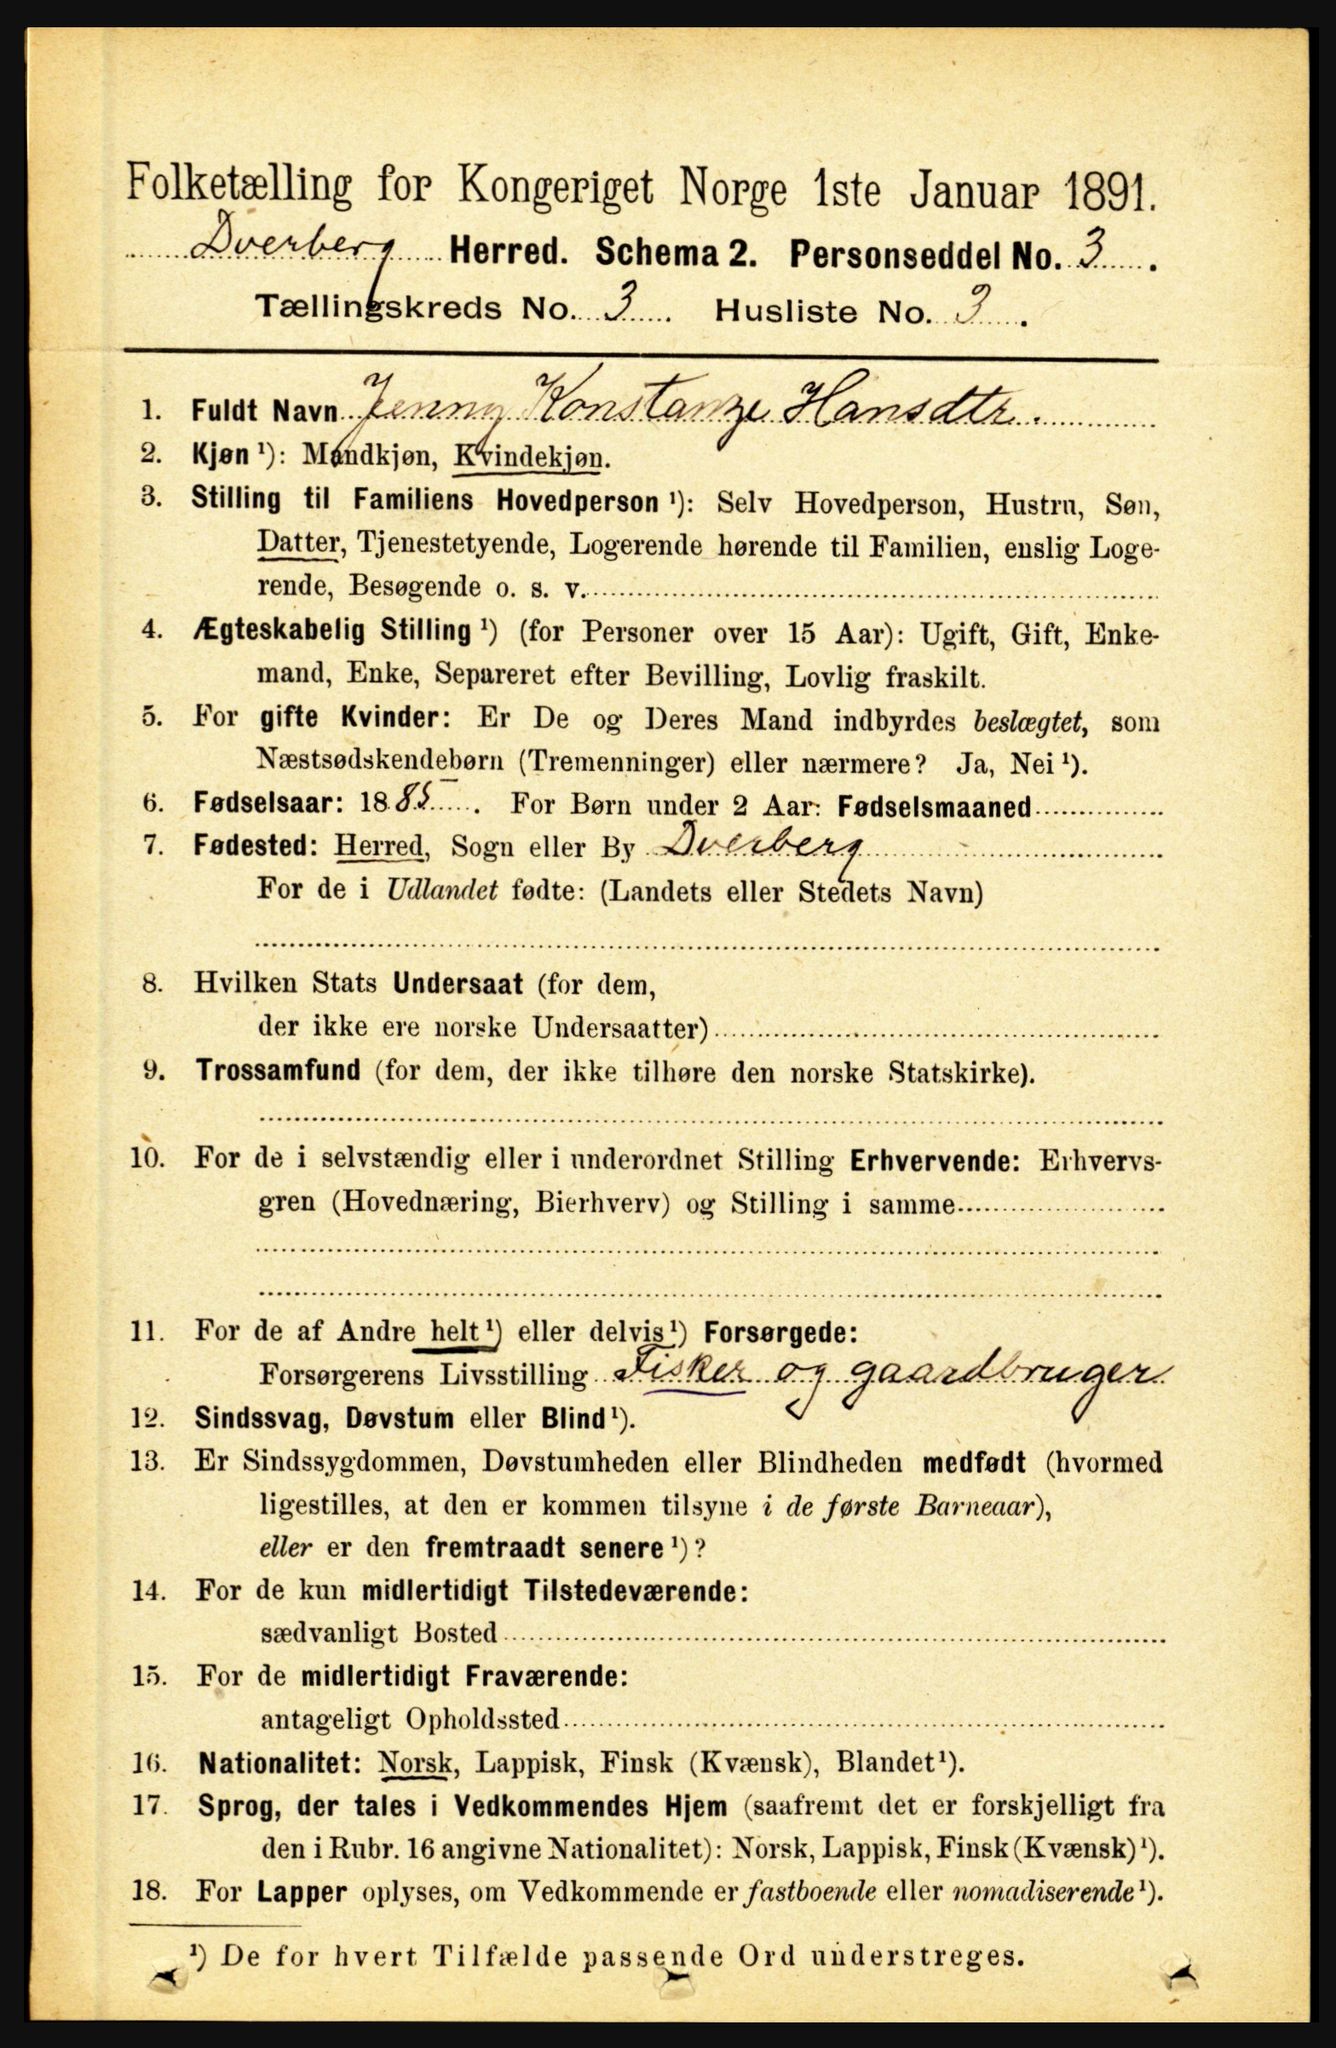 Folketælling for Kongeriget Norge 1ste Januar 1891.
Dverberg Herred. Schema 2. Personseddel No. 3.
Tællingskreds No. 3. Husliste No. 3.
1. Fuldt Navn Jenny Konstanze Hansdtr.
2. Kjøn ¹): Mandkjøn, Kvindekjøn.
3. Stilling til Familiens Hovedperson ¹): Selv Hovedperson, Hustru, Søn,
Datter, Tjenestetyende, Logerende hørende til Familien, enslig Loge-
rende, Besøgende o. s. v.
4. Ægteskabelig Stilling ¹) (for Personer over 15 Aar): Ugift, Gift, Enke-
mand, Enke, Separeret efter Bevilling, Lovlig fraskilt.
5. For gifte Kvinder: Er De og Deres Mand indbyrdes beslægtet, som
Næstsødskendebørn (Tremenninger) eller nærmere? Ja, Nei ¹).
6. Fødselsaar: 1885. For Børn under 2 Aar: Fødselsmaaned
7. Fødested: Herred, Sogn eller By Dverberg
For de i Udlandet fødte: (Landets eller Stedets Navn)
8. Hvilken Stats Undersaat (for dem,
der ikke ere norske Undersaatter)
9. Trossamfund (for dem, der ikke tilhøre den norske Statskirke).
10. For de i selvstændig eller i underordnet Stilling Erhvervende: Erhvervs-
gren (Hovednæring, Bierhverv) og Stilling i samme
11. For de af Andre helt ¹) eller delvis ¹) Forsørgede:
Forsørgerens Livsstilling Fisker og gaardbruger
12. Sindssvag, Døvstum eller Blind ¹).
13. Er Sindssygdommen, Døvstumheden eller Blindheden medfødt (hvormed
ligestilles, at den er kommen tilsyne i de første Barneaar),
eller er den fremtraadt senere ¹)?
14. For de kun midlertidigt Tilstedeværende:
sædvanligt Bosted
15. For de midlertidigt Fraværende:
antageligt Opholdssted
16. Nationalitet: Norsk, Lappisk, Finsk (Kvænsk), Blandet ¹).
17. Sprog, der tales i Vedkommendes Hjem (saafremt det er forskjelligt fra
den i Rubr. 16 angivne Nationalitet): Norsk, Lappisk, Finsk (Kvænsk) ¹).
18. For Lapper oplyses, om Vedkommende er fastboende eller nomadiserende ¹).
¹) De for hvert Tilfælde passende Ord understreges.